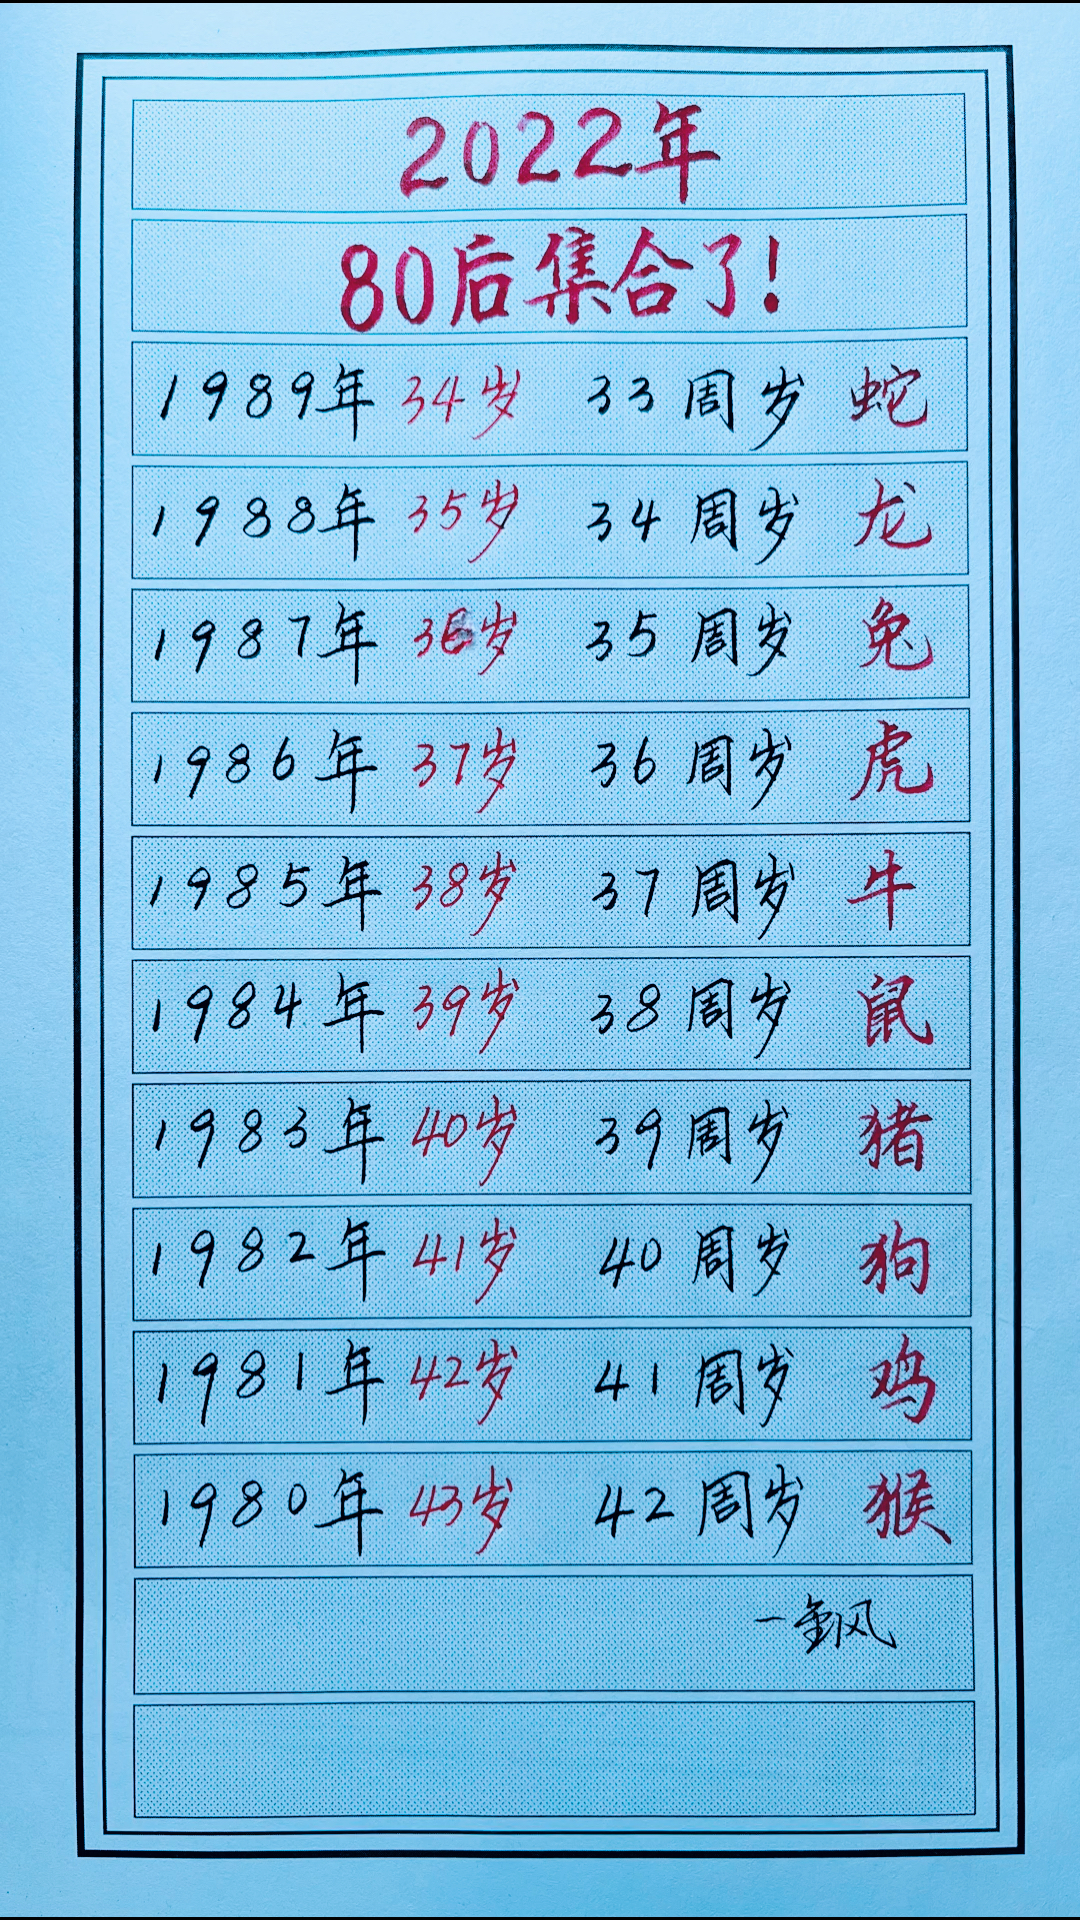 2022年
80后集合了!
1989年 34岁 33周岁 蛇
1988年 35岁 34周岁 龙
1987年 36岁 35周岁 兔
1986年 37岁 36周岁 虎
1985年 38岁 37周岁 牛
1984年 39岁 38周岁 鼠
1983年 40岁 39周岁 猪
1982年 41岁 40周岁 狗
1981年 42岁 41周岁 鸡
1980年 43岁 42周岁 猴
一剑风